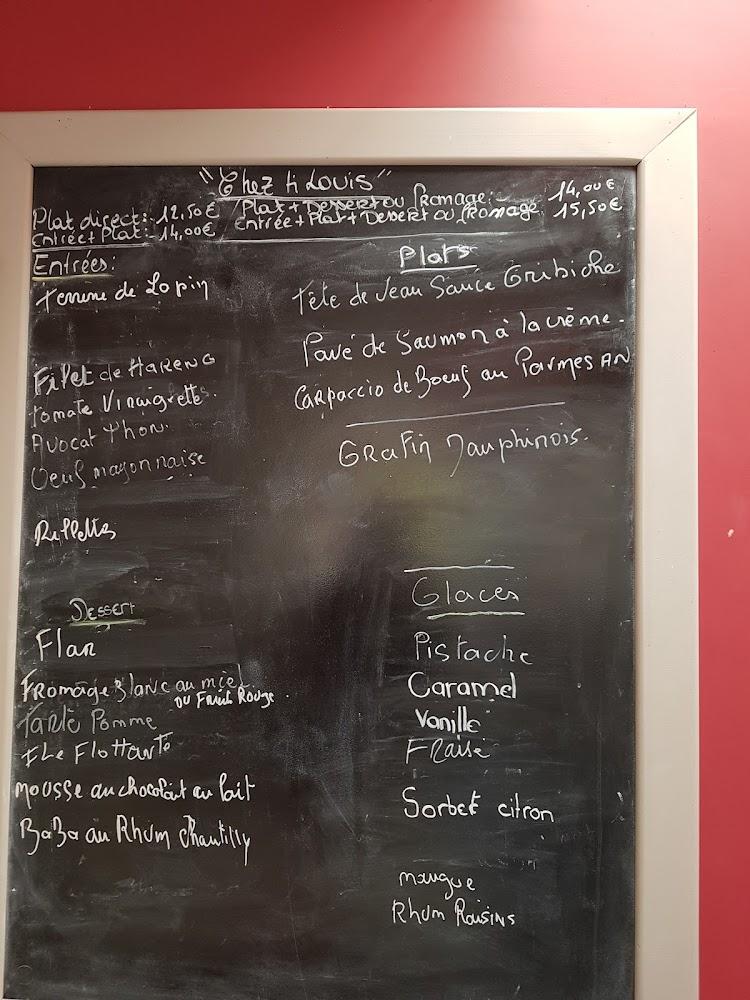 "Chez ti Louis"
Plat direct: 12,50€
Entrée + Plat: 14,00€
Plat + Dessert ou fromage: 14,00€
Entrée + Plat + Dessert ou fromage 15,50€
Entrées:
Terrine de Lapin
Filet de HARENG
Tomate Vinaigrette.
Avocat Thon
Oeuf mayonnaise
Rillettes
Plats
Tête de Veau Sauce Gribiche
Pavé de Saumon à la crème.
CARPACCIO de Boeuf au PARMESAN
GRATIN Dauphinois.
Dessert
Flan
FROMAGE Blanc au miel
ou Fruit Rouge.
Tarte Pomme
ILE Flottante
mousse au chocolat au lait
BaBa au Rhum Chantilly
Glaces
Pistache
Caramel
Vanille
FRaise
Sorbet citron
mangue
Rhum Raisins